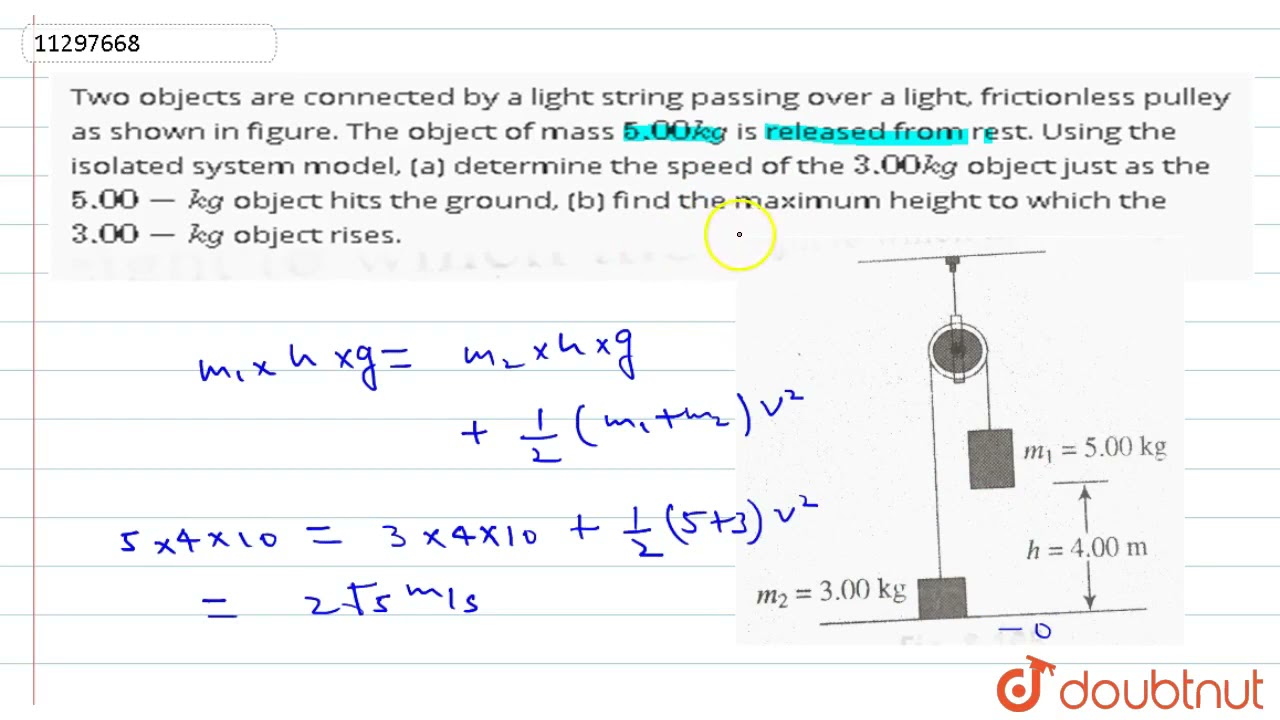 11297668
Two objects are connected by a light string passing over a light, frictionless pulley
as shown in figure. The object of mass 5.00kg is released from rest. Using the
isolated system model, (a) determine the speed of the 3.00kg object just as the
5.00 − kg object hits the ground, (b) find the maximum height to which the
3.00 − kg object rises.
m₁ × h × g = m₂ × h × g
+ 1/2 (m₁+m₂) v²
5×4×10 = 3×4×10 + 1/2 (5+3) v²
= 2√5 m/s
m₁ = 5.00 kg
h = 4.00 m
m₂ = 3.00 kg
− 0
doubtnut